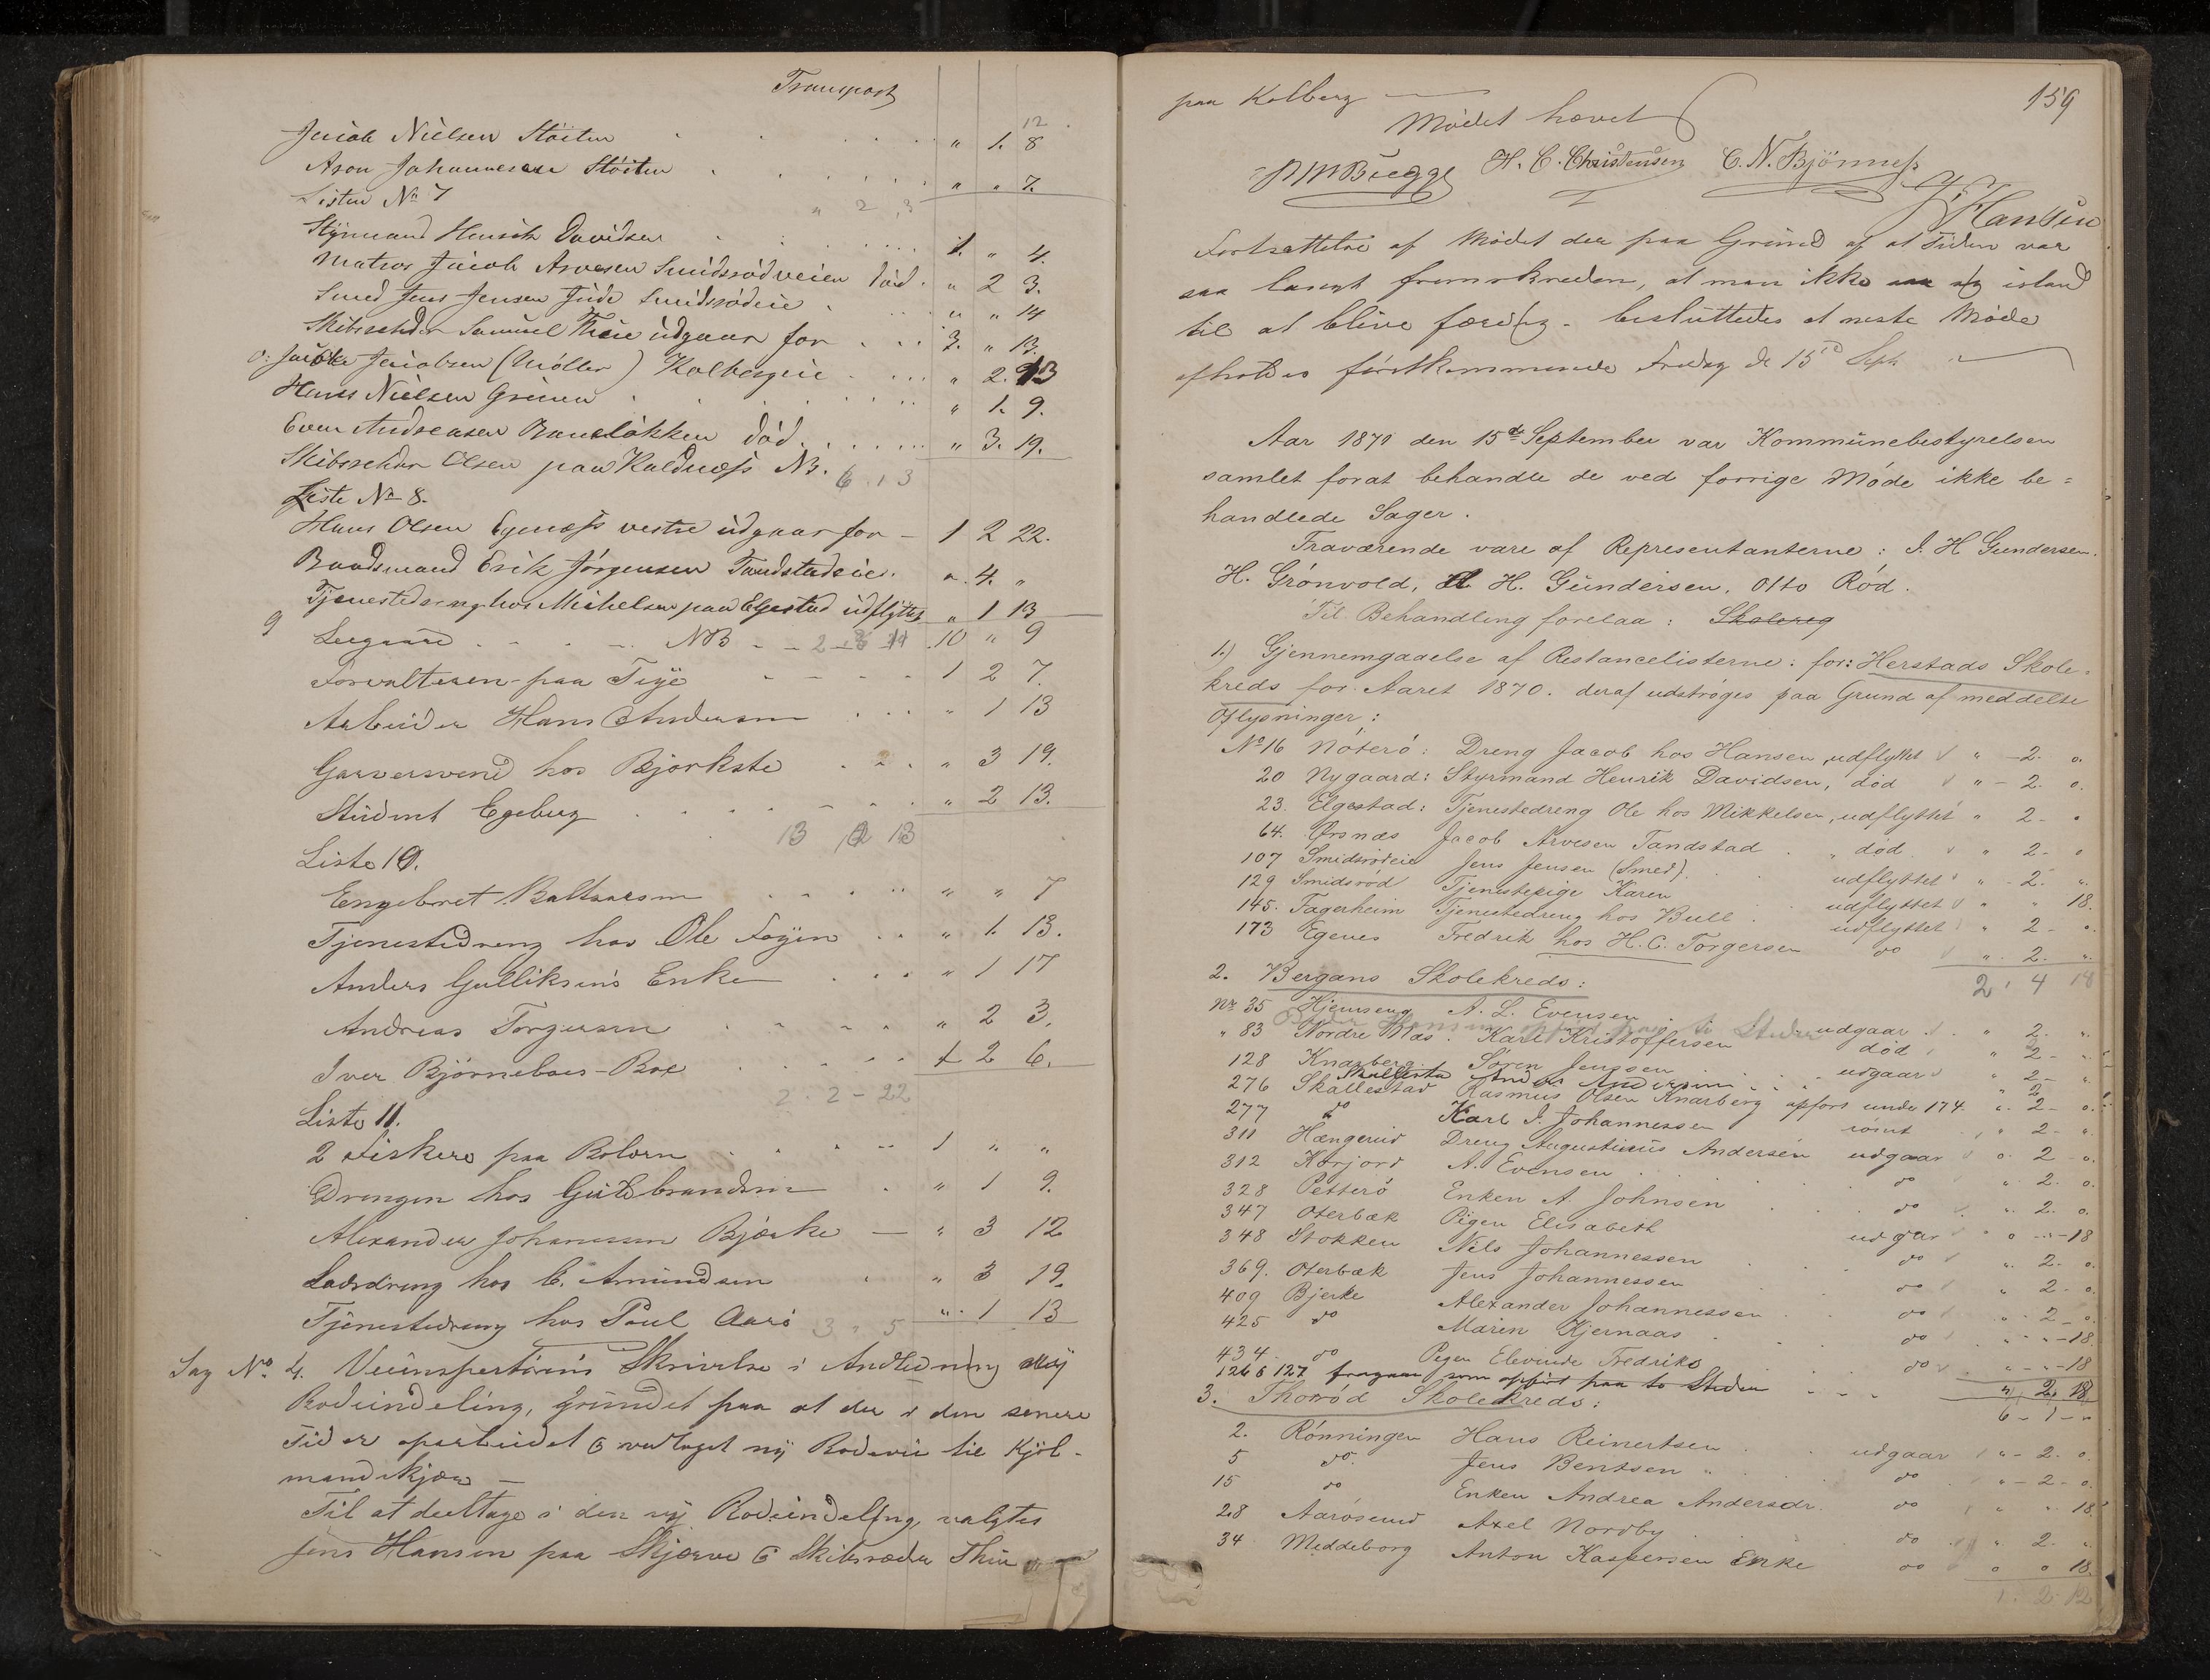 Transport
12
Jacob Nielsen Stöiten " 1. 8
Aron Johannesen Stöiten " " 7.
Listen No 7 " 2 3
Styrmand Henrik Davidsen 1. " 4.
Matros Jacob Arvesen Smidsrödveien död. " 2 3.
Smed Jens Jensen Jude Smidsrödeie " " 14
Skibsreder Samuel Thue udgaar for 3. " 13.
Jacobsen (Möller) Kolbergeie " 2. 13
Hans Nielsen Grimen " 1. 9.
Even Andreasen Banelökken död. " 3. 19.
Skibsreder Olsen paa Kaldnæss NB. 6 . 1 3
Liste No 8.
Hans Olsen Egenæss vestre udgaar for - 1 2 22.
Baadsmand Erik Jörgensen Tandstadeie. " 4. "
Tjenestedreng hos Mikelsen paa Elgestad udflyttet " 1 13
9 Leegaard NB 10 " 9
Forvalteren paa Teye 1 2 7.
Arbeider Hans Andersen " 1 13
Garversvend hos Bjorkste " 3 19.
Student Egeberg " 2 13.
13 2 13
Liste 10.
Engebret Baltsersen " " 7
Tjenestedreng hos Ole Foyen " 1. 13.
Anders Gulliksens Enke " 1 17
Andreas Torgersen " 2 3.
Iver Björneboes-Boe 2 6.
2 . 2 - 22
Liste 11.
2 Fiskere paa Bolærn 1 " "
Drengen hos Guldbrandsen " 1 9.
Alexander Johannesen Bjerke — " 3 12
Ladsdreng hos C. Amundsen " 3 19.
Tjenestedreng hos Paul Aarö 3 " 5 " 1 13
Sag No 4. Veiinspectörens Skrivelse i Andledning af ny
Rodeindeling, grundet paa at der i den senere
Tid er oparbeidet & vedtaget ny Rodevei til Kjöl-
mandskjær —
Til at deeltage i den ny Rodeindeling, valgtes
Jens Hansen paa Skjerve & Skibsreder Thue
159
paa Kolberg
Mödet hævet
Bugge H. C. Christensen C. N. Bjönness
Hansen
Fortsættelse af Mödet der paa Grund af at Tiden var
saa langt fremskreden, at man ikke saa sig istand
til at blive færdig - besluttedes at neste Möde
afholdes förstkommende Fredag d 15de Sept.
Aar 1871 den 15de September var Kommunebestyrelsen
samlet forat behandle de ved forrige Möde ikke be=
handlede Sager.
Fraværende vare af Representanterne: I. H Gundersen.
H. Grönvold, H. Gundersen. Otto Röd.
Til Behandling forelaa: Skolereg
1.) Gjennemgaaelse af Restancelisterne: for: Herstads Skole-
kreds for Aaret 1870. deraf udströges paa Grund af meddelte
Oplysninger:
No 16 Nöterö: Dreng Jacob hos Hansen, udflyttet " - 2. o.
20 Nygaard: Styrmand Henrik Davidsen, död " - 2. o.
23. Elgestad: Tjenestedreng Ole hos Mikkelsen, udflyttet " 2 - "
64. Örsnæs Jacob Arvesen Tandstad " död " 2 - o
107 Smidsrödeie Jens Jensen (Smed). udflyttet " - 2. ".
129 Smidsröd Tjenestepige Karen udflyttet " " 18.
145. Fagerheim Tjenestedreng hos Bull udflyttet " 2 - o.
173 Egenes Fredrik hos H. C. Torgersen do " 2. ".
2. Bergans Skolekreds: 2 . 4 18
Nr 35 Hjemseng A. L. Evensen udgaar " 2. ".
" 83 Nordre Næs. Karl Kristoffersen död " 2 - ".
128 Knarberg Sören Jenssen udgaar " 2 - ".
Skallestad Anders Andersen " 2
276 Skallestad Rasmus Olsen Knarberg opfört under 174. " 2 - o.
277 do Karl I. Johannessen römt " 2 - ".
311 Hængerud Dreng Augustinius Andersen udgaar o. 2 - o.
312 Kærjord A. Evensen do ". 2. o.
328 Petterö Enken A. Johnsen do ". 2. o.
347 Oterbæk Pigen Elisabeth udgaar o - " - 18
348 Stokken Nils Johannessen do ". 2 - o.
369. Oterbæk Jens Johannessen do " 2 - o.
409 Bjerke Alexander Johannessen do " 2 - o.
425 do Maren Kjernaas do " - " - 18.
434. do Pigen Elevinde Fredriks do " - " - 18
126 & 127 fragaar som opfört paa to Steder " 2 18
3. Thoröd Skolekreds: 6 - 1 - "
2. Rönningen Hans Reinertsen udgaar " - 2 - o.
5 do. Jens Bentsen " do " - 2 - o.
15 do Enken Andrea Andersdr. do " " 18
28 Aarösund Axel Nordby do " 2. "
34 Meddeborg Anton Kaspersen Enke do o o 18.
1. 2. 12